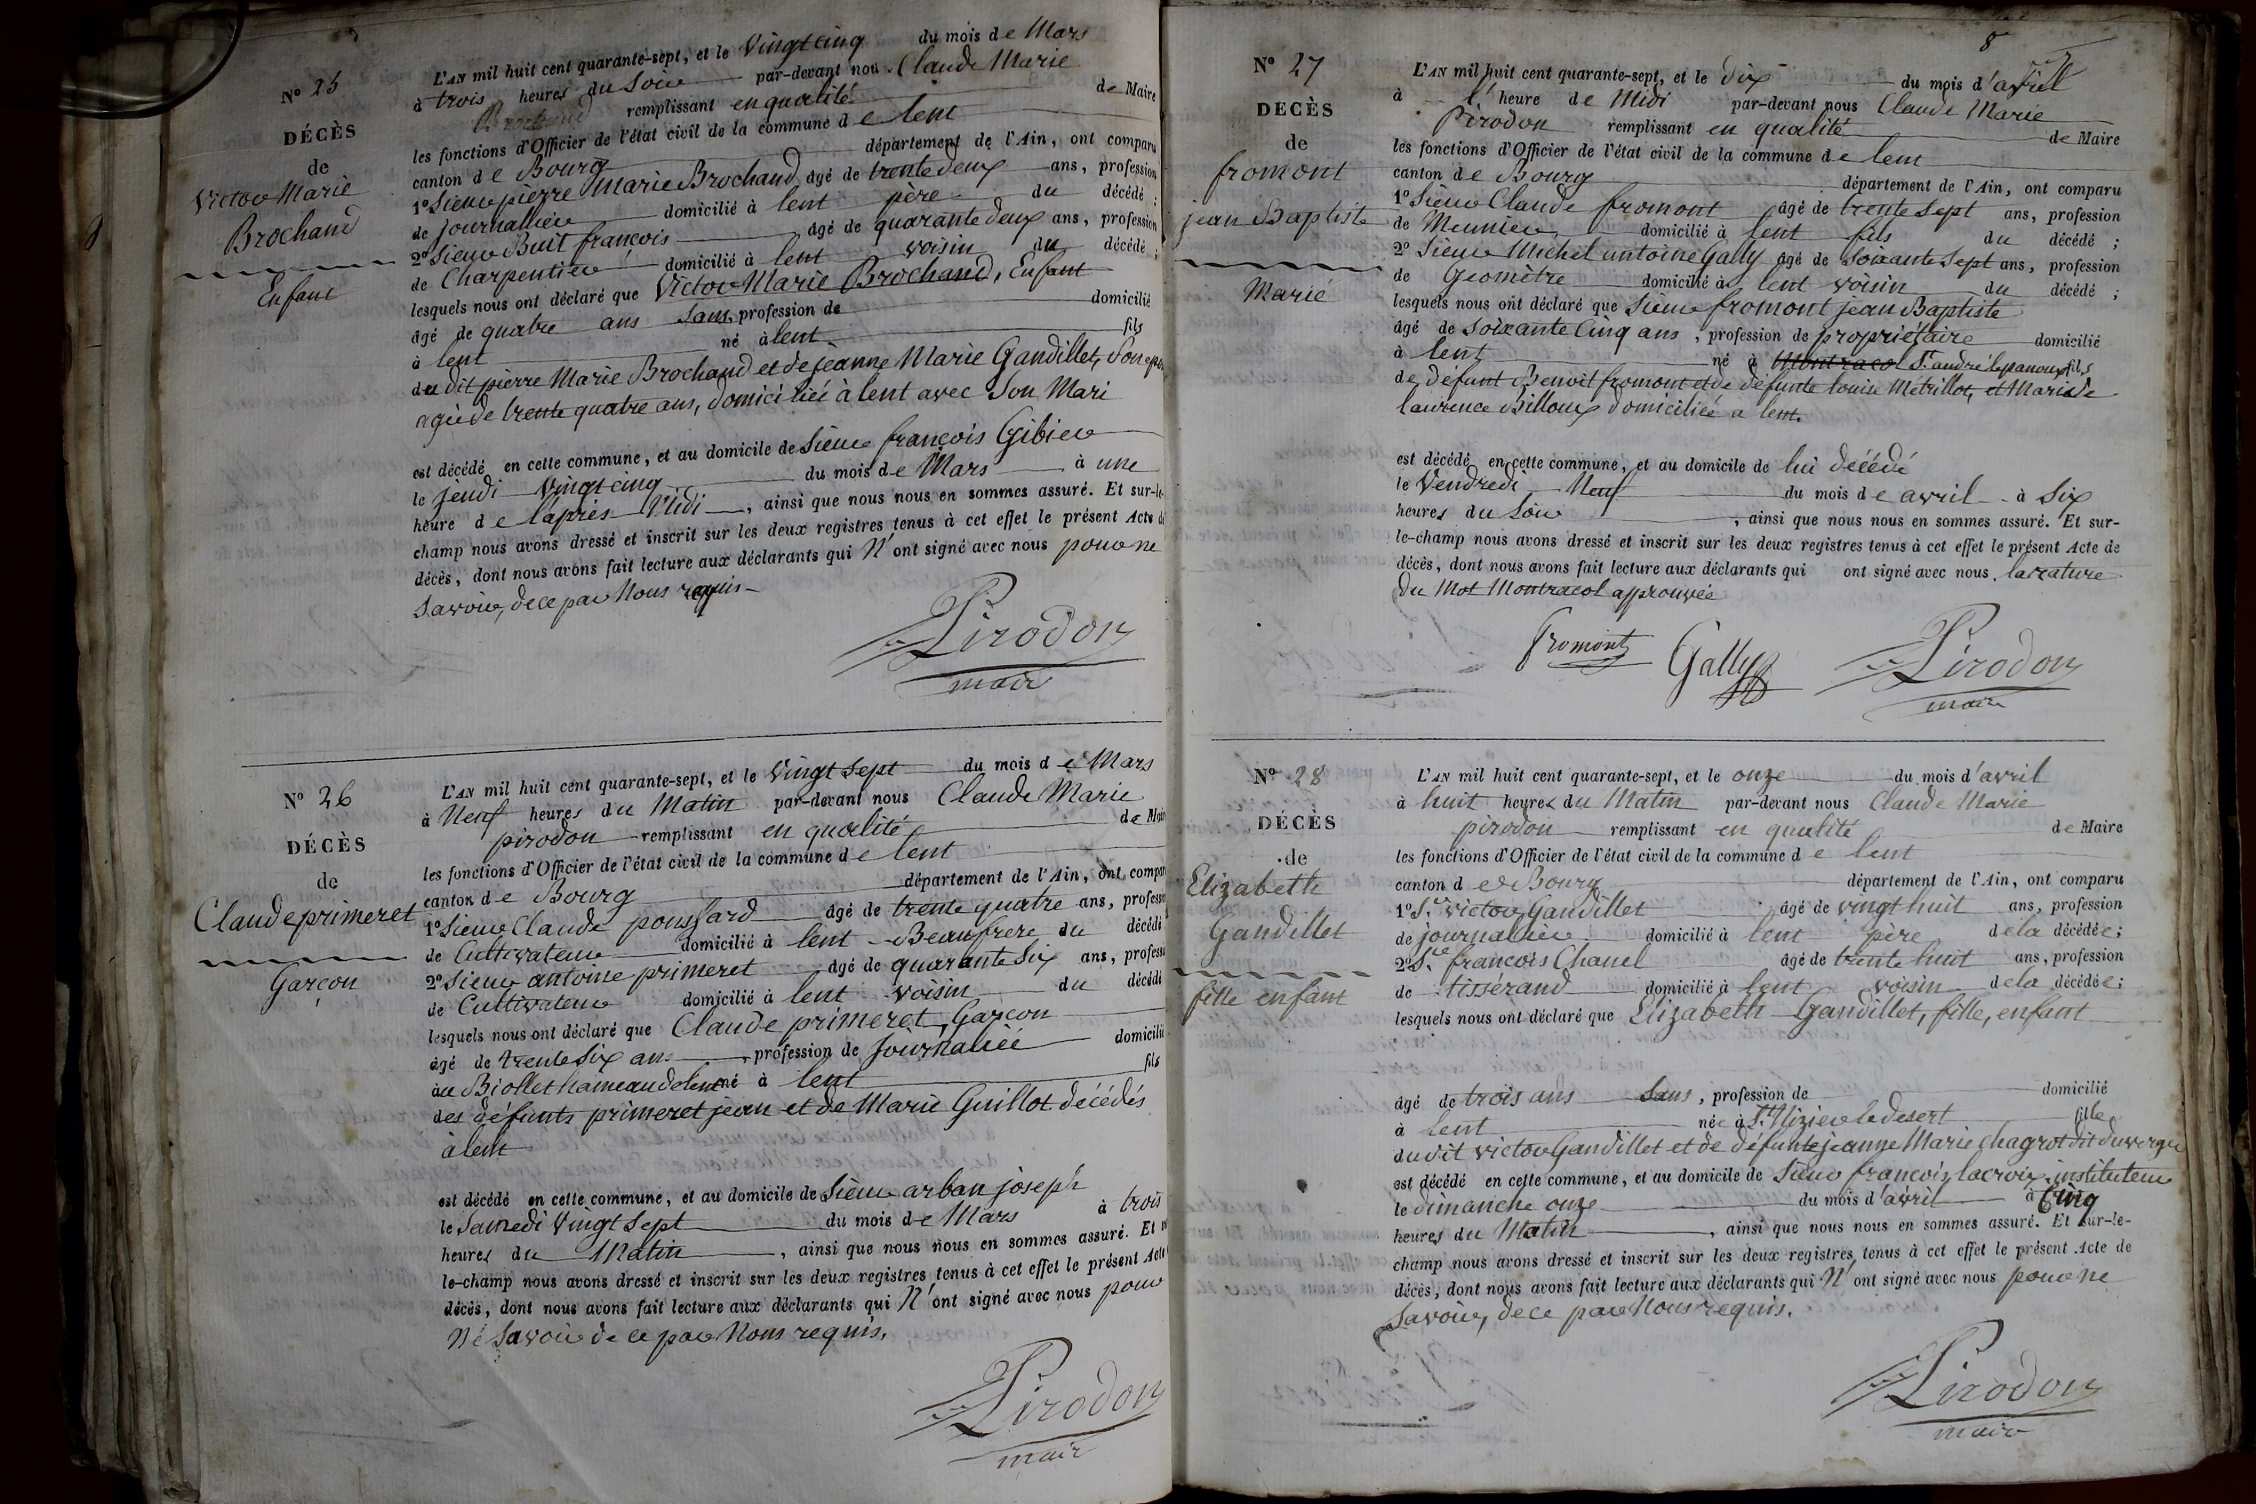 N° 25
DÉCÈS
de
Victor Marie
Brochand
Enfant
L'AN mil huit cent quarante-sept, et le Vingt cinq du mois de Mars
à trois heures du Soir par-devant nou Claude Marie
remplissant en qualité de Maire
les fonctions d'Officier de l'état civil de la commune de lent
canton de Bourg département de l'Ain, ont comparu
1° Sieur pierre Marie Brochand âgé de trente deux ans, profession
de journallier domicilié à lent père du décédé ;
2° Sieur Buit françois âgé de quarante deux ans, profession
de Charpentier domicilié à lent voisin du décédé ;
lesquels nous ont déclaré que Victor Marie Brochand, Enfant
âgé de quatre ans Sans, profession de domicilié
à lent né à lent fils
du dit pierre Marie Brochand et de jeanne Marie Gandillet, Son
agée de trente quatre ans, domiciliée à lent avec Son Mari
est décédé en cette commune, et au domicile de Sieur françois Gibier
le jeudi Vingt cinq du mois de Mars à une
heure de l'après Midi, ainsi que nous nous en sommes assuré. Et sur-le-
champ nous avons dressé et inscrit sur les deux registres tenus à cet effet le présent Acte de
décès, dont nous avons fait lecture aux déclarants qui N'ont signé avec nous pour ne
Savoir, de ce par Nous requis
Pirodon
mair
N° 26
DÉCÈS
de
Claude primeret
Garçon
L'AN mil huit cent quarante-sept, et le Vingt Sept du mois de Mars
à Neuf heures du Matin par-devant nous Claude Marie
pirodon remplissant en qualité de Maire
les fonctions d'Officier de l'état civil de la commune de lent
canton de Bourg département de l'Ain, ont comparu
1° Sieur Claude poussard âgé de trente quatre ans, profession
de Cultivateur domicilié à lent Beaufrere du décédé
2° Sieur antoine primeret âgé de quarante Six ans, profession
de Cultivateur domicilié à lent voisin du décédé
lesquels nous ont déclaré que Claude primeret, Garçon
âgé de trente Six ans, profession de Journalié domicilié
au Biollet hameau de lent né à lent fils
des défunts primeret jean et de Marie Guillot décédés
à lent
est décédé en cette commune, et au domicile de Sieur arban joseph
le Samedi Vingt Sept du mois de Mars à trois
heures du Matin, ainsi que nous nous en sommes assuré. Et sur
le-champ nous avons dressé et inscrit sur les deux registres tenus à cet effet le présent Acte
décès, dont nous avons fait lecture aux déclarants qui N'ont signé avec nous pour
Ne Savoir de ce par Nous requis.
Pirodon
mair
8
N° 27
DECÈS
de
fromont
jean Baptiste
Marié
L'AN mil huit cent quarante-sept, et le dix du mois d'avril
à l'heure de Midi par-devant nous Claude Marie
Pirodon remplissant en qualité de Maire
les fonctions d'Officier de l'état civil de la commune de lent
canton de Bourg département de l'Ain, ont comparu
1° Sieur Claude fromont âgé de trente Sept ans, profession
de Meunier domicilié à lent fils du décédé ;
2° Sieur Michel antoine Gally âgé de Soixante Sept ans, profession
de Geomètre domicilié à lent voisin du décédé ;
lesquels nous ont déclaré que Sieur fromont jean Baptiste
âgé de Soixante Cinq ans, profession de propriétaire domicilié
à lent né à Montracol St. andré lepanoux fils
de défunt Benoit fromont et de défunte louise Metrillot, et Marié de
laurence Billoux domiciliée a lent.
est décédé en cette commune, et au domicile de lui décédé
le Vendredi Neuf du mois de avril à Six
heures du Soir, ainsi que nous nous en sommes assuré. Et sur-
le-champ nous avons dressé et inscrit sur les deux registres tenus à cet effet le présent Acte de
décès, dont nous avons fait lecture aux déclarants qui ont signé avec nous. la rature
du Mot Montracol approuvée
Fromont Gally Pirodon
mair
N° 28
DÉCÈS
de
Elizabeth
Gandillet
fille enfant
L'AN mil huit cent quarante-sept, et le onze du mois d'avril
à huit heures du Matin par-devant nous Claude Marie
pirodon remplissant en qualité de Maire
les fonctions d'Officier de l'état civil de la commune de lent
canton de Bourg département de l'Ain, ont comparu
1° Sr. victor Gandillet âgé de vingt huit ans, profession
de journalier domicilié à lent père de la décédée ;
2° Sr. françois Chanel âgé de trente huit ans, profession
de tissérand domicilié à lent voisin de la décédée ;
lesquels nous ont déclaré que Elizabeth Gandillet, fille, enfant
âgé de trois ans Sans, profession de domicilié
à lent née à St. Nizier le desert fille
du dit victor Gandillet et de défunte jeanne Marie Chagrot dit duverger
est décédé en cette commune, et au domicile de Sieur françois lacroix instituteur
le dimanche onze du mois d'avril à Cinq
heures du Matin, ainsi que nous nous en sommes assuré. Et sur-le-
champ nous avons dressé et inscrit sur les deux registres tenus à cet effet le présent Acte de
décès, dont nous avons fait lecture aux déclarants qui N'ont signé avec nous pour ne
Savoir, de ce par Nous requis.
Pirodon
mair